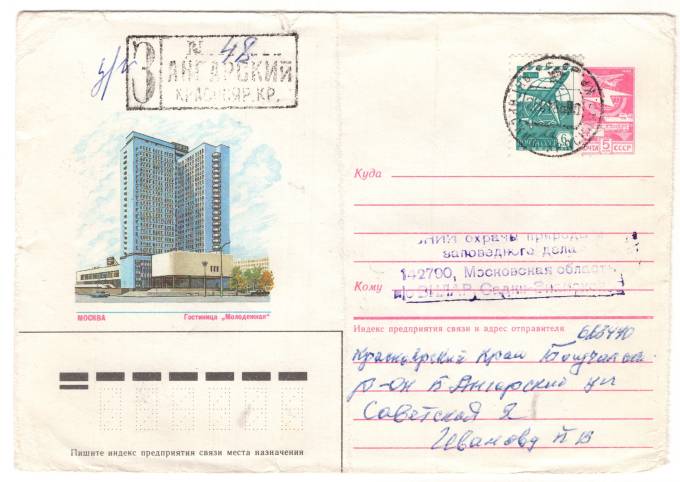 у/п
З
N 48
АНГАРСКИЙ
КРАСНОЯР. КР.
6
ПОЧТА 5 СССР
Куда
охраны природы
заповедного дела
142790, Московская область
Кому
п/о ВИЛАР,
МОСКВА
Гостиница „Молодежная“
Индекс предприятия связи и адрес отправителя
663440
Красноярский Край
р-он Б Ангарский ул
Советская 2
Иванову П В
Пишите индекс предприятия связи места назначения